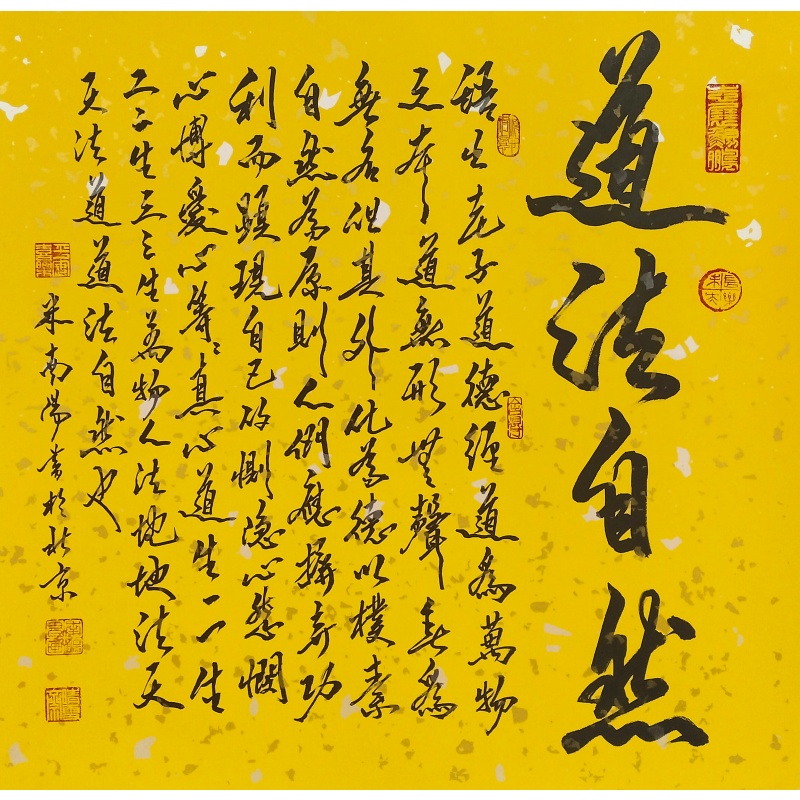 道法自然
語出老子道德經道為萬物
之本道無形無聲無為
無名但其外化為德以樸素
自然為原則人們應摒弃功
利而顯現自己的惻隱心慈憫
心博愛心等等真心道生一一生
二二生三三生萬物人法地地法天
天法道道法自然也
米南陽書於北京